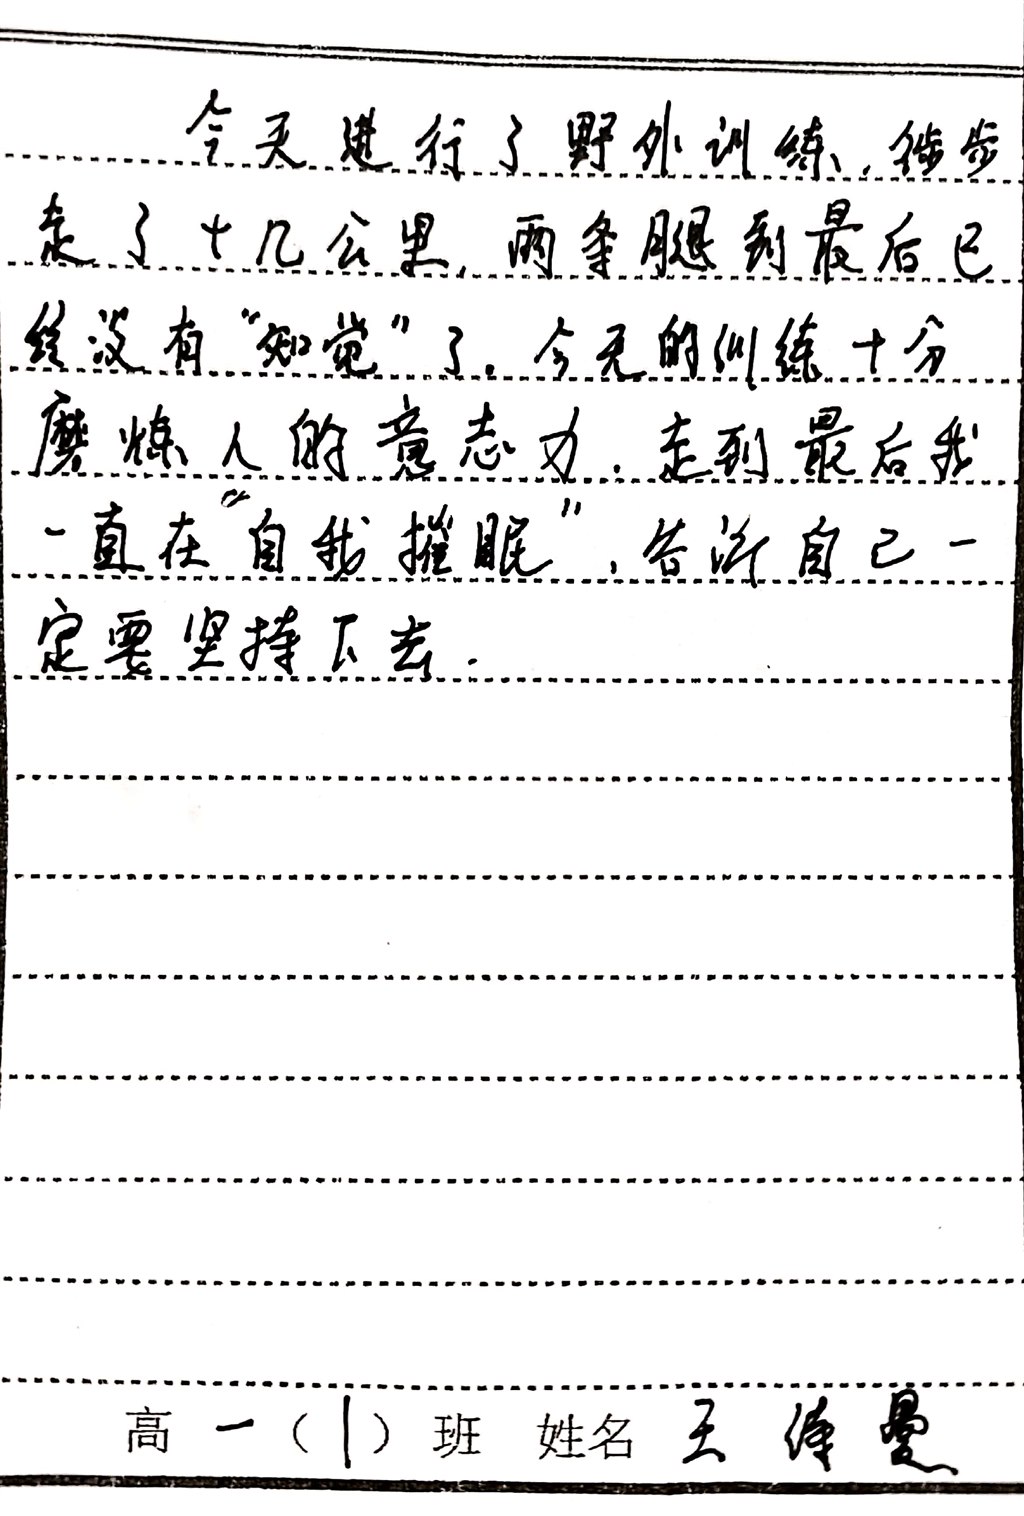 今天进行了野外训练，徒步
走了十几公里，两条腿到最后已
经没有“知觉”了。今天的训练十分
磨炼人的意志力．走到最后我
一直在“自我摧眠”，告诉自己一
定要坚持下去．
高一（1）班 姓名 王倩曼